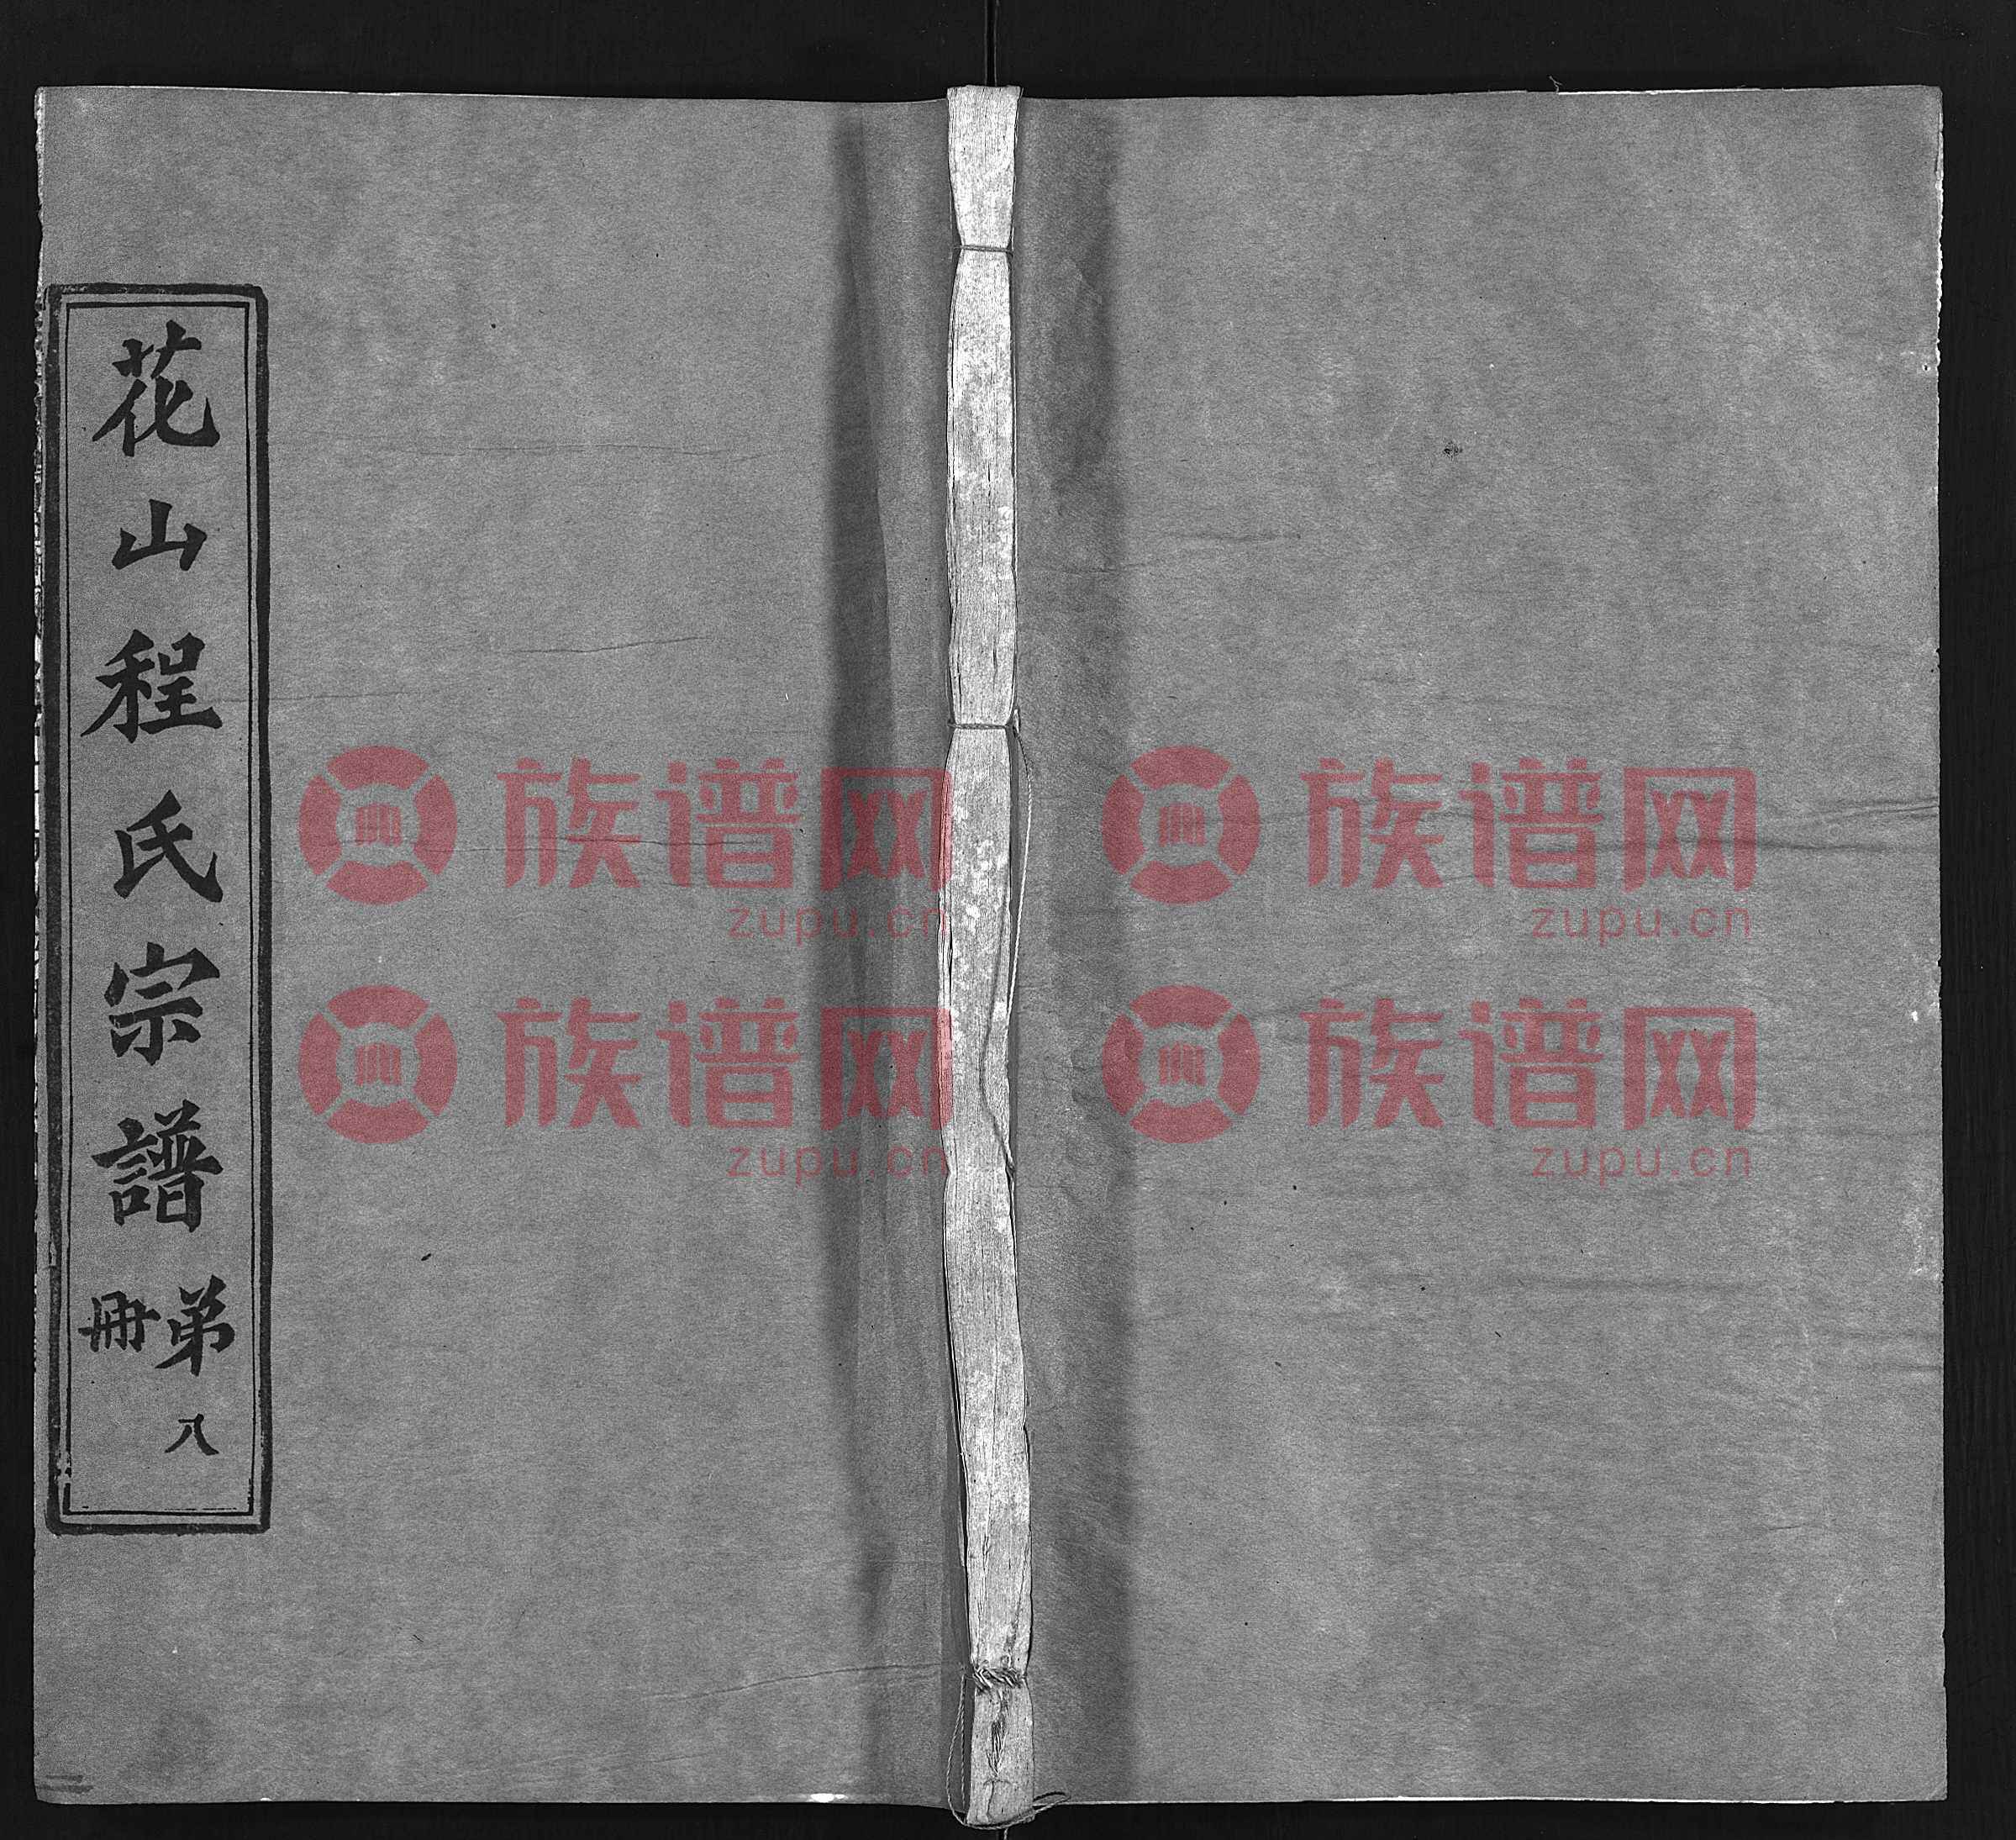 花山程氏宗譜 弟八
冊
族谱网 族谱网
zupu.cn zupu.cn
族谱网 族谱网
zupu.cn zupu.cn